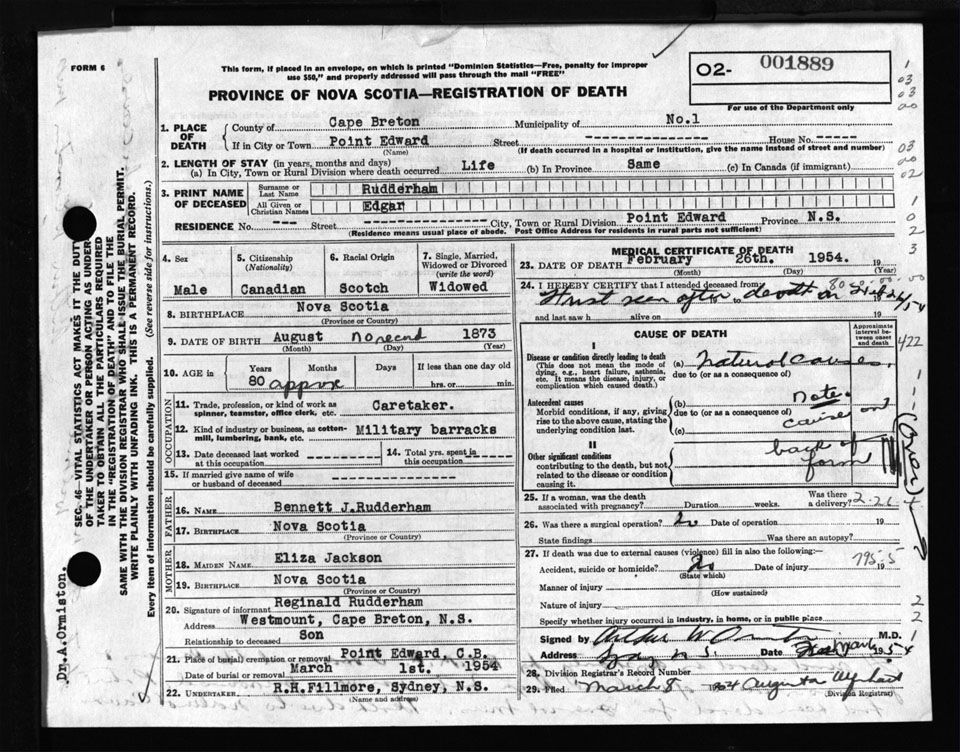 FORM 6
This form, if placed in an envelope, on which is printed "Dominion Statistics—Free, penalty for improper
use $50," and properly addressed will pass through the mail "FREE"
O2- 001889
For use of the Department only
PROVINCE OF NOVA SCOTIA—REGISTRATION OF DEATH
1. PLACE OF DEATH
County of Cape Breton Municipality of No.1
If in City or Town Point Edward Street ------------- House No. -----
(Name) (If death occurred in a hospital or institution, give the name instead of street and number)
2. LENGTH OF STAY (in years, months and days)
(a) In City, Town or Rural Division where death occurred Life (b) In Province Same (c) In Canada (if immigrant)
3. PRINT NAME OF DECEASED
Surname or Last Name Rudderham
All Given or Christian Names Edgar
RESIDENCE No. --- Street ---------- City, Town or Rural Division Point Edward Province N.S.
(Residence means usual place of abode. Post Office Address for residents in rural parts not sufficient)
4. Sex
Male
5. Citizenship
(Nationality)
Canadian
6. Racial Origin
Scotch
7. Single, Married, Widowed or Divorced
(write the word)
Widowed
8. BIRTHPLACE Nova Scotia
(Province or Country)
9. DATE OF BIRTH August no record 1873
(Month) (Day) (Year)
10. AGE in
Years Months Days If less than one day old
80 approx hrs. or min.
OCCUPATION
11. Trade, profession, or kind of work as
spinner, teamster, office clerk, etc. Caretaker.
12. Kind of industry or business, as cotton-
mill, lumbering, bank, etc. Military barracks
13. Date deceased last worked
at this occupation
14. Total yrs. spent in
this occupation
15. If married give name of wife
or husband of deceased
FATHER
16. NAME Bennett J.Rudderham
17. BIRTHPLACE Nova Scotia
(Province or Country)
MOTHER
18. MAIDEN NAME Eliza Jackson
19. BIRTHPLACE Nova Scotia
(Province or Country)
20. Signature of informant Reginald Rudderham
Address Westmount, Cape Breton, N.S.
Relationship to deceased Son
21. Place of burial cremation or removal Point Edward, C.B.
Date of burial or removal March 1st. 1954
22. UNDERTAKER R.H.Fillmore, Sydney, N.S.
(Name and address)
MEDICAL CERTIFICATE OF DEATH
23. DATE OF DEATH February 26th. 1954. 19
(Month) (Day) (Year)
24. I HEREBY CERTIFY that I attended deceased from
to
and last saw h alive on 19
CAUSE OF DEATH
Approximate interval between onset and death
I
Disease or condition directly leading to death
(This does not mean the mode of
dying, e.g., heart failure, asthenia,
etc. It means the disease, injury, or
complication which caused death.)
(a) natural causes,
due to (or as a consequence of)
Antecedent causes
Morbid conditions, if any, giving
rise to the above cause, stating the
underlying condition last.
(b) note.
due to (or as a consequence of)
cause on
(c)
II
back of
form
Other significant conditions
contributing to the death, but not
related to the disease or condition
causing it.
25. If a woman, was the death
associated with pregnancy? Duration weeks. Was there
a delivery?
26. Was there a surgical operation? No Date of operation 19
State findings Was there an autopsy?
27. If death was due to external causes (violence) fill in also the following:—
Accident, suicide or homicide? No Date of injury 19
(State which)
Manner of injury
(How sustained)
Nature of injury
Specify whether injury occurred in industry, in home, or in public place
Signed by M.D.
Address N.S. Date
28. Division Registrar's Record Number
29. Filed March 8 1954
(Division Registrar)
SEC. 46—VITAL STATISTICS ACT MAKES IT THE DUTY
OF THE UNDERTAKER OR PERSON ACTING AS UNDER-
TAKER TO OBTAIN ALL THE PARTICULARS REQUIRED
IN THE "REGISTRATION OF DEATH" AND TO FILE THE
SAME WITH THE DIVISION REGISTRAR WHO SHALL ISSUE THE BURIAL PERMIT.
WRITE PLAINLY WITH UNFADING INK. THIS IS A PERMANENT RECORD.
Every item of information should be carefully supplied. (See reverse side for instructions.)
Dr.A.Ormiston.